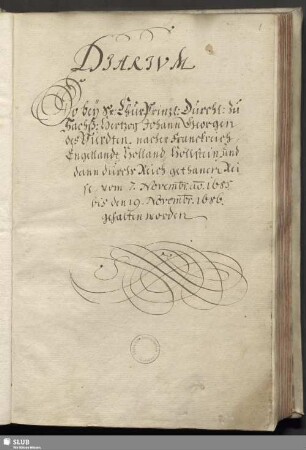 DIARIVM
So bey Sr: ChurPrinzl: Durchl: zu
Sachß: Herzog Johann Georgen
des Vierdten, nacher Franckreich
Engelland, Holland, Hollstein und
dann durchs Reich gethanen Rei
se, vom 7. Novembr: ao. 1685
bis den 19. Novembr: 1686.
gehalten worden
1
SLUB